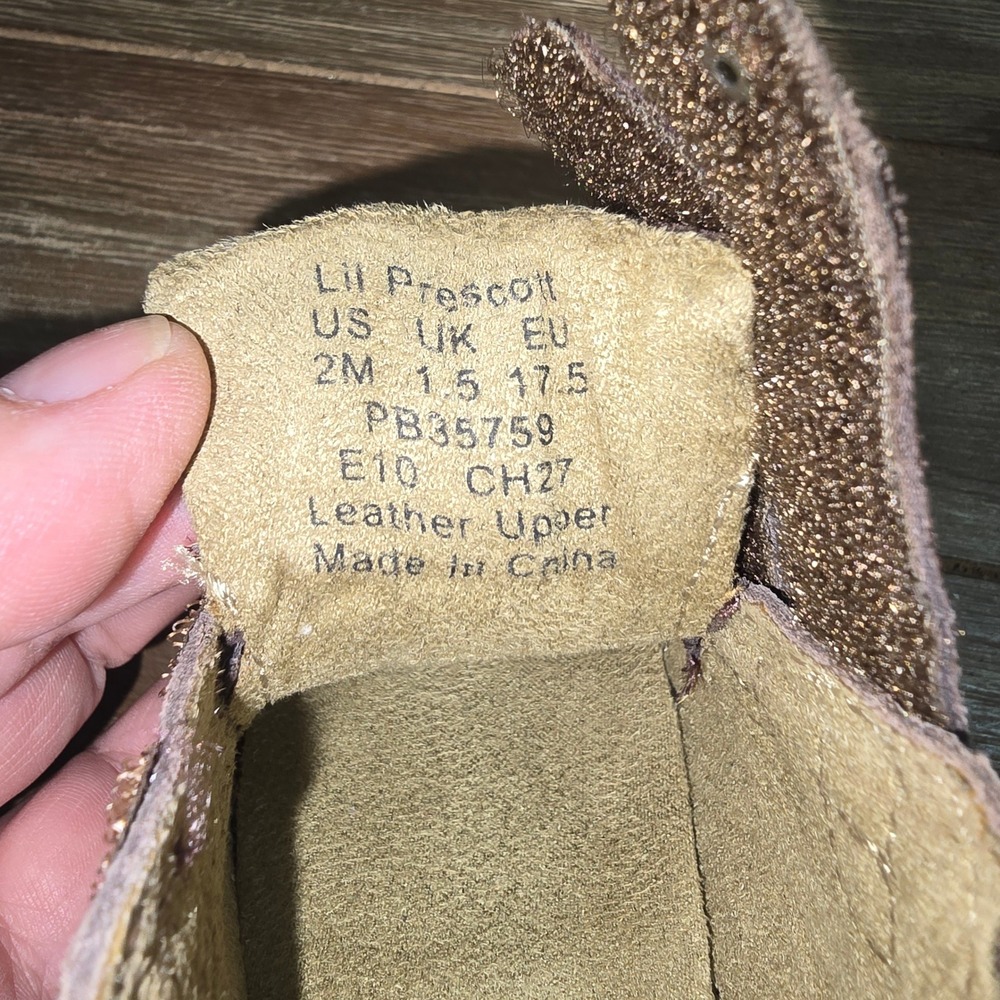 Lil Prescott
US UK EU
2M 1.5 17.5
PB35759
E10 CH27
Leather Upper
Made in China